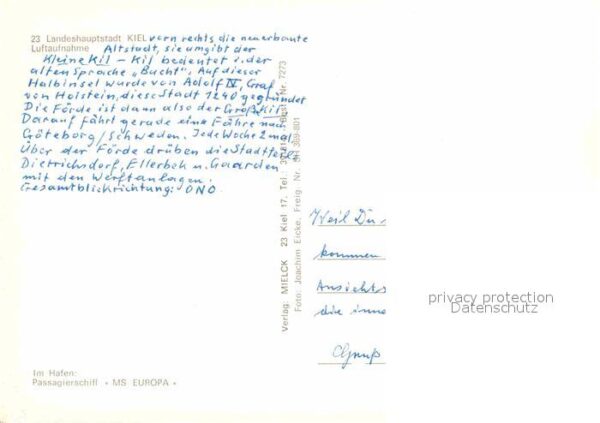 23 Landeshauptstadt KIEL vorn rechts die neuerbaute
Luftaufnahme Altstadt, sie umgibt der
Kleine Kil – Kil bedeutet i. der
alten Sprache „Bucht". Auf dieser
Halbinsel wurde von Adolf IV, Graf
von Holstein, diese Stadt 1240 gegründet
Die Förde ist dann also der Große Kil.
Darauf fährt gerade eine Fähre nach
Göteborg/Schweden. Jede Woche 2 mal
Über der Förde drüben die Stadtteile
Dietrichsdorf, Ellerbek u. Gaarden
mit den Werftanlagen.
Gesamtblickrichtung: ONO.
Im Hafen:
Passagierschiff « MS EUROPA »
Verlag: MIELCK 23 Kiel 17. Tel.: Best. Nr. 7273
Foto: Joachim Eicke, Freig. Nr. SH 309-801
Weil Du
kommen
Ansichts
die inne
Gruß
privacy protection
Datenschutz